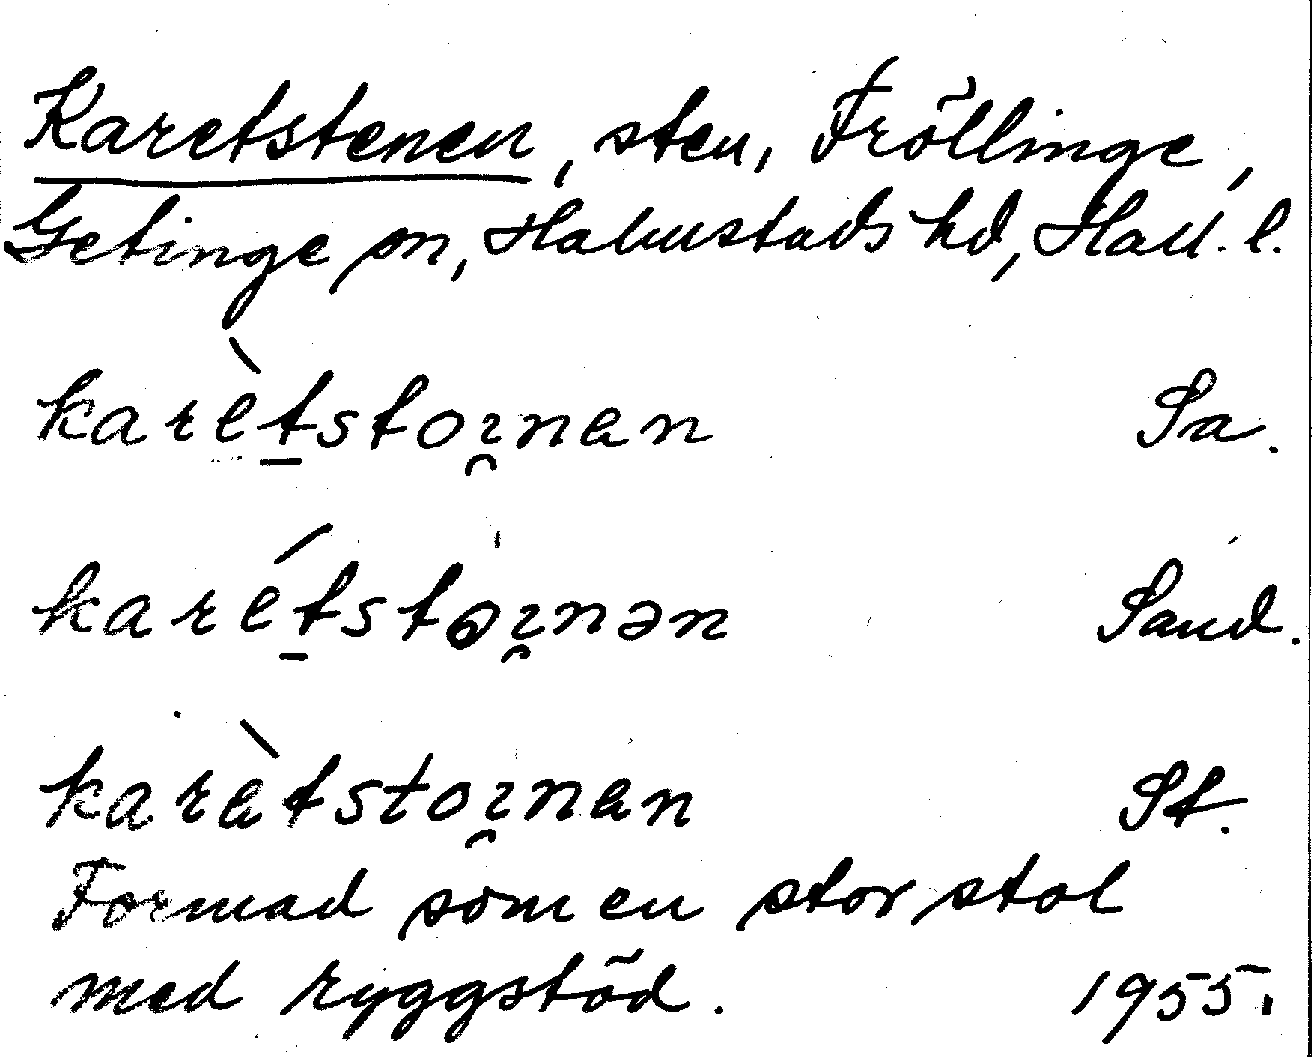 Karetstenen, sten, Fröllinge,
Getinge sn, Halmstads hd, Hall. l.
karètstoi̯nan Sa.
karétstoi̯nən Sand.
karètstoi̯nan St.
Formad som en stor stol
med ryggstöd. 1955.